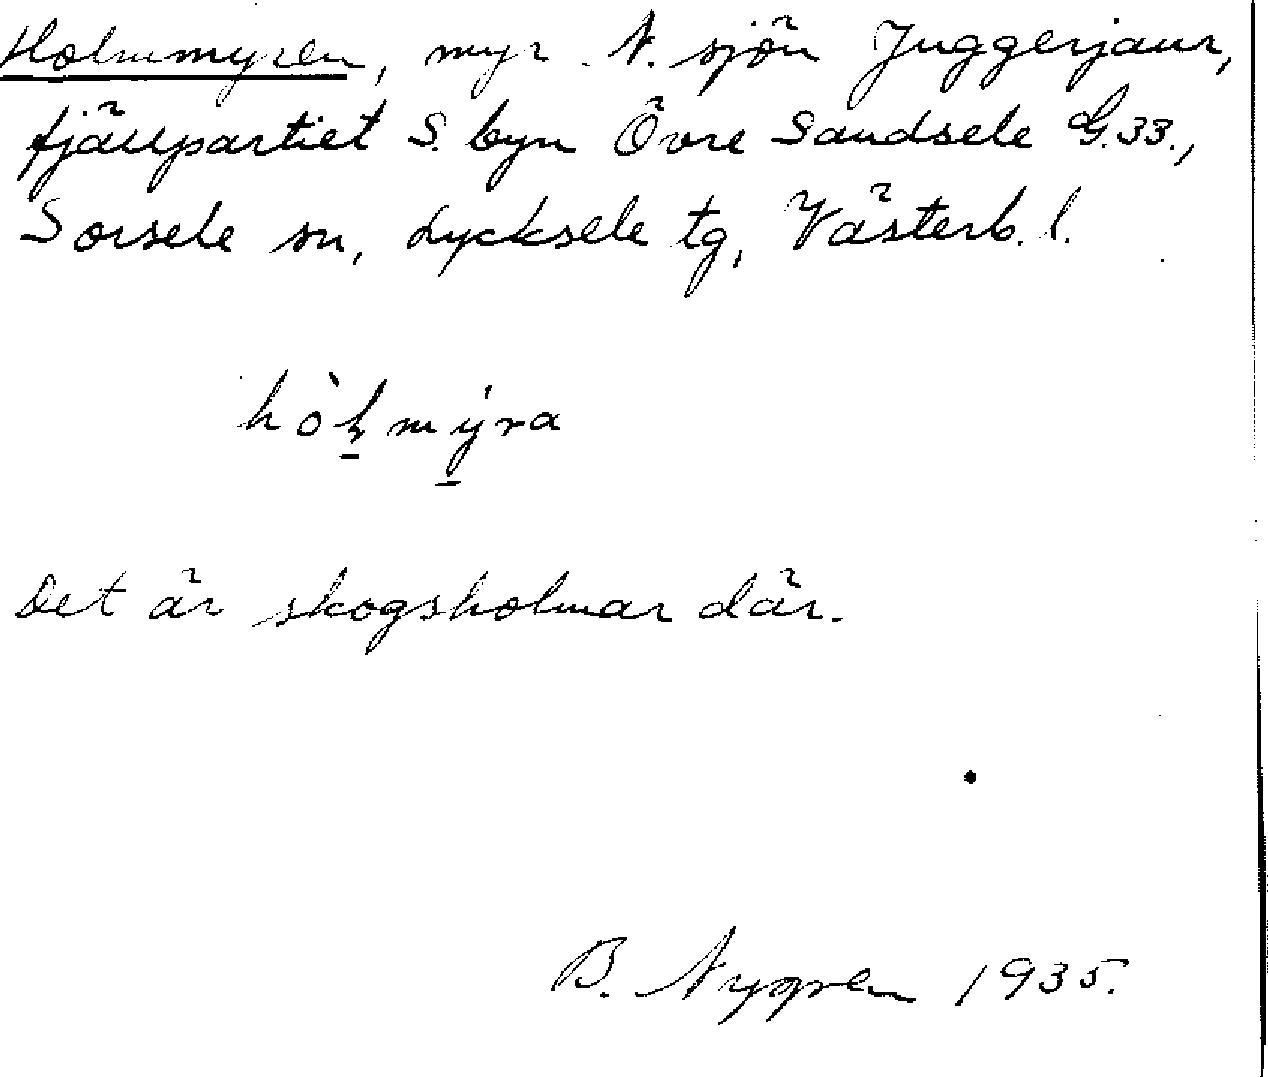 Holmmyren, myr N. sjön Juggerjaur,
fjällpartiet S. byn Övre Sandsele G.33.,
Sorsele sn, Lycksele tg, Västerb. l.
Det är skogsholmar där.
B. Nygren 1935.